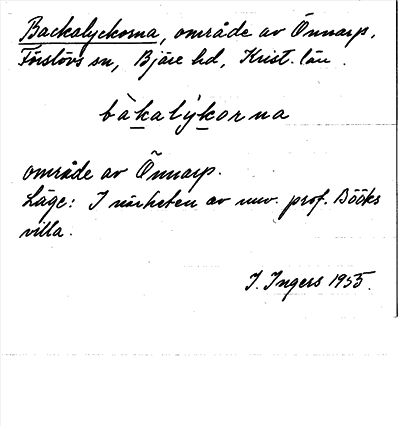 Backalyckorna, område av Önnarp,
Förslövs sn, Bjäre hd, Krist. län.
bàkalýkorna
område av Önnarp.
Läge: I närheten av nuv. prof. Bööks
villa.
I. Ingers 1955.